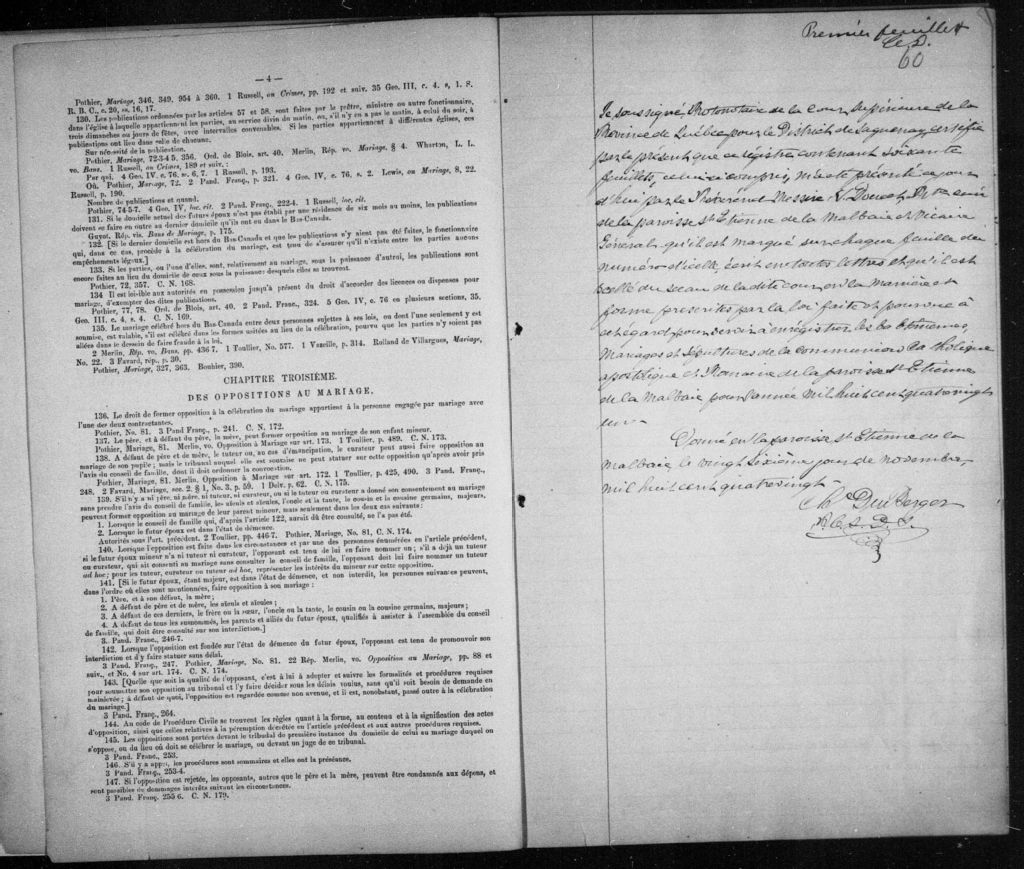 — 4 —
Pothier, Mariage, 346, 349, 954 à 360. 1 Russell, on Crimes, pp. 192 et suiv. 35 Geo. III, c. 4. s, 1. S.
R. B. C., c. 20, ss. 16, 17.
130. Les publications ordonnées par les articles 57 et 58, sont faites par le prêtre, ministre ou autre fonctionnaire,
dans l'église à laquelle appartiennent les parties, au service divin du matin, ou, s'il n'y en a pas le matin, à celui du soir, à
trois dimanches ou jours de fêtes, avec intervalles convenables. Si les parties appartiennent à différentes églises, ces
publications ont lieu dans celle de chacune.
Sur nécessité de la publication.
Pothier, Mariage, 72-3-4 5. 356. Ord. de Blois, art. 40. Merlin, Rép. vo. Mariage, § 4. Wharton, L. L.
vo. Bans. 1 Russell, on Crimes, 189 et suiv. :
Par qui. 4 Geo. IV, c. 76, s. 6, 7. 1 Russell, p. 193.
Où. Pothier, Mariage, 72. 2 Pand. Franç. p. 321. 4 Geo. IV, c. 76, s. 2. Lewis, on Mariage, 8, 22.
Russell, p. 190.
Nombre de publications et quand.
Pothier, 74-5-7. 4 Geo. IV, loc. cit. 2 Pand. Franç. 222-4. 1 Russell, loc. cit.
131. Si le domicile actuel des futurs époux n'est pas établi par une résidence de six mois au moins, les publications
doivent se faire en outre au dernier domicile qu'ils ont eu dans le Bas-Canada.
Guyot, Rép. vis. Bans de Mariage, p. 175.
132. [Si le dernier domicile est hors du Bas-Canada et que les publications n'y aient pas été faites, le fonctionnaire
qui, dans ce cas, procède à la célébration du mariage, est tenu de s'assurer qu'il n'existe entre les parties aucuns
empêchements légaux.]
133. Si les parties, ou l'une d'elles, sont, relativement au mariage, sous la puissance d'autrui, les publications sont
encore faites au lieu du domicile de ceux sous la puissance desquels elles se trouvent.
Pothier, 72, 357. C. N. 168.
134 Il est loisible aux autorités en possession jusqu'à présent du droit d'accorder des licences ou dispenses pour
mariage, d'exempter des dites publications.
Pothier, 77, 78. Ord. de Blois, art. 40. 2 Pand. Franç., 324. 5 Geo. IV, c. 76 en plusieurs sections, 35.
Geo. III, c. 4, s. 4. C. N. 169.
135. Le mariage célébré hors du Bas Canada entre deux personnes sujettes à ses lois, ou dont l'une seulement y est
soumise, est valable, s'il est célébré dans les formes usitées au lieu de la célébration, pourvu que les parties n'y soient pas
allées dans le dessein de faire fraude à la loi.
2 Merlin, Rép. vo. Bans, pp. 436 7. 1 Toullier, No. 577. 1 Vazeille, p. 314. Rolland de Villargues, Mariage,
No. 22. 3 Favard, rép., p. 30.
Pothier, Mariage, 327, 363. Bouhier, 390.
CHAPITRE TROISIÈME.
DES OPPOSITIONS AU MARIAGE.
136. Le droit de former opposition à la célébration du mariage appartient à la personne engagée par mariage avec
l'une des deux contractantes.
Pothier, No. 81. 3 Pand Franç., p. 241. C. N. 172.
137. Le père, et à défaut du père, la mère, peut former opposition au mariage de son enfant mineur.
Pothier, Mariage, 81. Merlin, vo. Opposition à Mariage sur art. 173. 1 Toullier, p. 489. C. N. 173.
138. A défaut de père et de mère, le tuteur ou, au cas d'émancipation, le curateur peut aussi faire opposition au
mariage de son pupile ; mais le tribunal auquel elle est soumise ne peut statuer sur cette opposition qu'après avoir pris
l'avis du conseil de famille, dont il doit ordonner la convocation.
Pothier, Mariage, 81. Merlin, Opposition à Mariage sur art. 172. 1 Toullier, p. 425, 490. 3 Pand. Franç.,
248. 2 Favard, Mariage, sec. 2. § 1, No. 3. p. 59. 1 Delv. p. 62. C. N. 175.
139. S'il n'y a ni père, ni mère, ni tuteur, ni curateur, ou si le tuteur ou curateur a donné son consentement au mariage
sans prendre l'avis du conseil de famille, les aïeuls et aïeules, l'oncle et la tante, le cousin et la cousine germains, majeurs,
peuvent former opposition au mariage de leur parent mineur, mais seulement dans les deux cas suivants :
1. Lorsque le conseil de famille qui, d'après l'article 122, aurait dû être consulté, ne l'a pas été.
2. Lorsque le futur époux est dans l'état de démence.
Autorités sous l'art. précédent. 2 Toullier, pp. 446 7. Pothier, Mariage, No. 81, C. N. 174.
140. Lorsque l'opposition est faite dans les circonstances et par une des personnes énumérées en l'article précédent,
si le futur époux mineur n'a ni tuteur ni curateur, l'opposant est tenu de lui en faire nommer un ; s'il a déjà un tuteur
ou curateur, qui ait consenti au mariage sans consulter le conseil de famille, l'opposant doit lui faire nommer un tuteur
ad hoc ; pour les tuteur, curateur ou tuteur ad hoc, représenter les intérêts du mineur sur cette opposition.
141. [Si le futur époux, étant majeur, est dans l'état de démence, et non interdit, les personnes suivantes peuvent,
dans l'ordre où elles sont mentionnées, faire opposition à son mariage :
1. Père, et à son défaut, la mère ;
2. A défaut de père et de mère, les aïeuls et aïeules ;
3. A défaut de ces derniers, le frère ou la sœur, l'oncle ou la tante, le cousin ou la cousine germains, majeurs ;
4. A défaut de tous les susnommés, les parents et alliés du futur époux, qualifiés à assister à l'assemblée du conseil
de famille, qui doit être consulté sur son interdiction.]
3. Pand. Franç., 246-7.
142. Lorsque l'opposition est fondée sur l'état de démence du futur époux, l'opposant est tenu de promouvoir son
interdiction et d'y faire statuer sans délai.
3 Pand. Franç., 247. Pothier, Mariage, No. 81. 22 Rép. Merlin, vo. Opposition au Mariage, pp. 88 et
suiv., et No. 4 sur art. 174. C. N. 174.
143. [Quelle que soit la qualité de l'opposant, c'est à lui à adopter et suivre les formalités et procédures requises
pour soumettre son opposition au tribunal et l'y faire décider sous les délais voulus, sans qu'il soit besoin de demande en
mainlevée ; à défaut de quoi, l'opposition est regardée comme non avenue, et il est, nonobstant, passé outre à la célébration
du mariage.]
3 Pand. Franç., 264.
144. Au code de Procédure Civile se trouvent les règles quant à la forme, au contenu et à la signification des actes
d'opposition, ainsi que celles relatives à la péremption décrétée en l'article précédent et aux autres procédures requises.
145. Les oppositions sont portées devant le tribunal de première instance du domicile de celui au mariage duquel on
s'oppose, ou du lieu où doit se célébrer le mariage, ou devant un juge de ce tribunal.
3 Pand. Franç., 253.
146. S'il y a appel, les procédures sont sommaires et elles ont la préséance.
3 Pand. Franç., 253-4.
147. Si l'opposition est rejetée, les opposants, autres que le père et la mère, peuvent être condamnés aux dépens, et
sont passibles de dommages intérêts suivant les circonstances.
3 Pand. Franç. 255 6. C. N. 179.
Premier feuillet
60
Je soussigné, Protonotaire de la Cour Supérieure de la
Province de Québec pour le District de Saguenay, certifie
par le présent que ce régistre contenant soixante
feuillets, celui-ci compris, m'a été présenté ce jour
d'hui par le Révérend Messire Doucet, Ptre curé
de la paroisse St Etienne de la Malbaie et Vicaire
Général, qu'il est marqué sur chaque feuille du
numéro d'icelle, écrit en toutes lettres et qu'il est
scellé du sceau de la dite cour, en la manière et
forme prescrites par la loi faite et pourvue à
cet égard, pour servir à enregistrer les Baptêmes,
Mariages et Sépultures de la Communion Catholique
apostolique et Romaine de la paroisse St Etienne
de la Malbaie pour l'année mil huit cent quatre vingt
un.
Donné en la paroisse St Etienne de la
Malbaie, le vingt sixième jour de novembre,
mil huit cent quatre vingt.
Chs Du Berger
P. C. S. D. S.